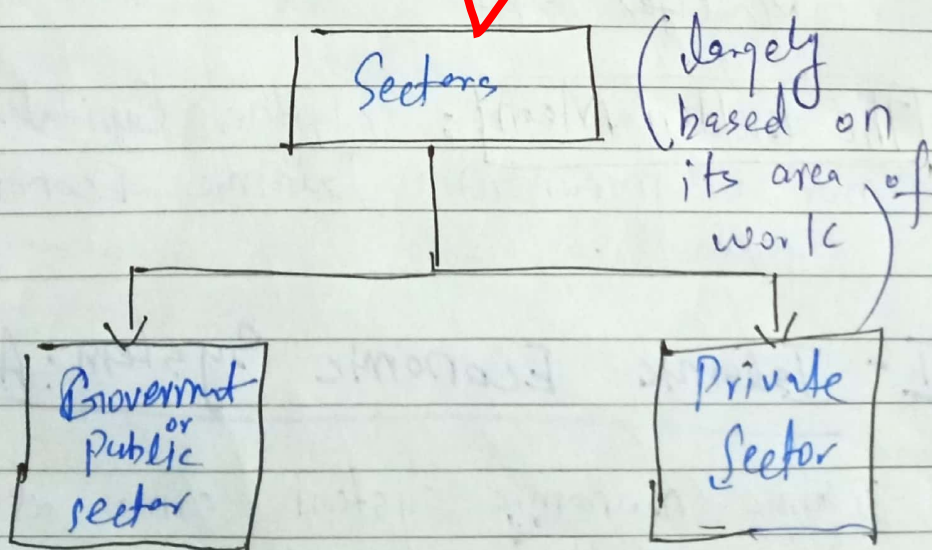 Sectors
(largely
based on
its area of
work)
Goverment
or
Public
sector
Private
Sector